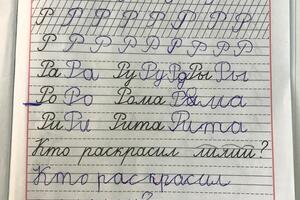 Р Р Р Р Р Р Р Р
Р Р Р Р Р Р Р Р Р
Ра Ра Ру Ру Ру Ры Ры
Ро Ро Рома Рома
Ри Ри Рита Рита
Кто раскрасил лилии?
Кто раскрасил